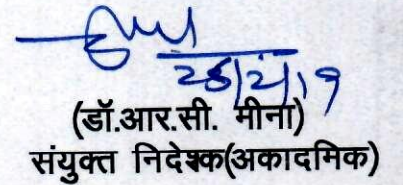 28/2/19
(डॉ.आर.सी. मीना)
संयुक्त निदेश्क(अकादमिक)